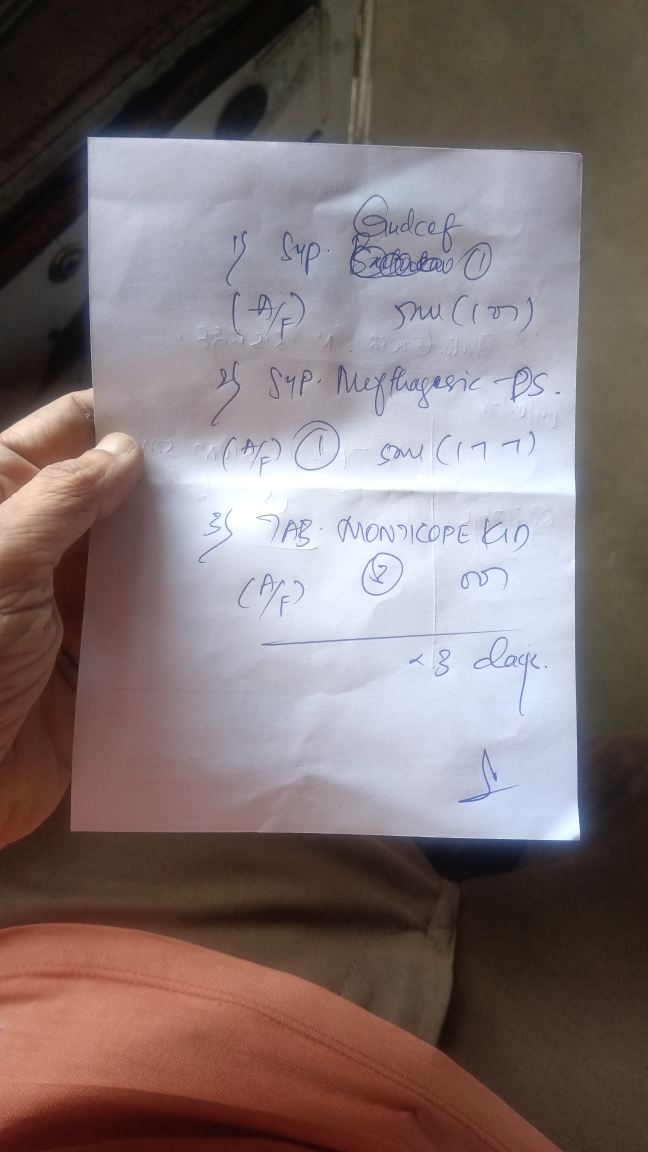 1) Syp. Gudcef ①
(A/F) 5ml (1
2) Syp. Mefthagesic-DS.
(A/F) ① 5ml (1 7 7)
3) TAB. MONTICOPE KID
(A/F)
x 3 days.